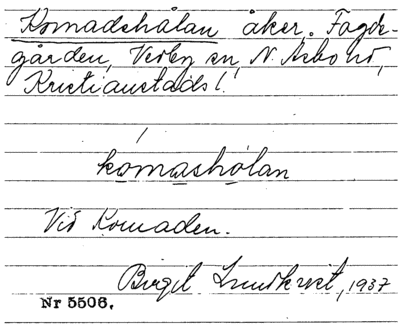 Komadshålan åker. Fågde-
gården, Verby sn, N. Åsbo hd,
Kristianstads l.
komashålan
Vid Komaden.
Birgit Lundkvist, 1937
Nr 5506.